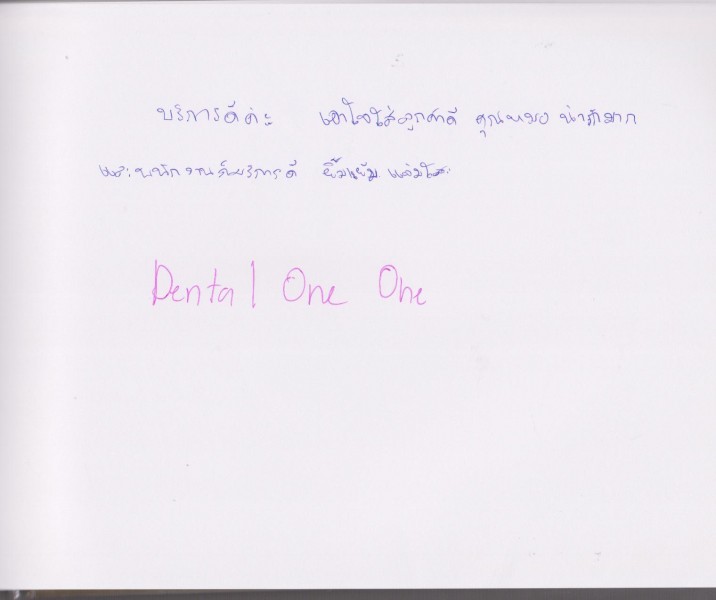 บริการดีค่ะ เอาใจใส่ลูกค้าดี คุณหมอ น่ารักมาก
และพนักงานก็บริการดี ยิ้มแย้ม แจ่มใส
Dental One One